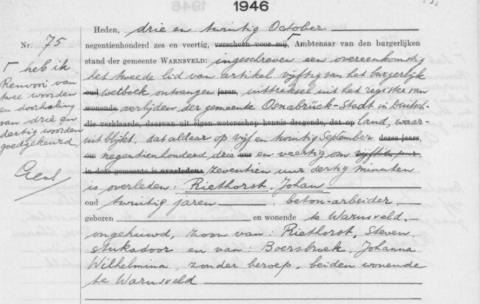 1946
Heden, drie en twintig October
Nr. 75
negentienhonderd zes en veertig, verscheen voor mij, Ambtenaar van den burgerlijken
stand der gemeente WARNSVELD: ingeschreven een overeenkomstig
het tweede lid van artikel vijftig van het burgerlijk
wetboek ontvangen uittreksel uit het register van
overlijden der gemeente Osnabrück-Stadt in Duitsch-
die verklaarde, daarvan uit eigen wetenschap kennis dragende, dat op land, waar-
uit blijkt, dat aldaar op vijf en twintig September dezes jaars,
negentienhonderd drie en veertig om
in deze gemeente is overleden: zeventien uur dertig minuten
is overleden: Riethorst, Johan
oud twintig jaren, betonarbeider,
geboren en wonende te Warnsveld,
ongehuwd, zoon van: Riethorst, Steven
stukadoor en van: Boersbroek, Johanna
Wilhelmina, zonder beroep, beiden wonende
te Warnsveld
heb ik
Renvooi van
twee woorden
en doorhaling
van drie en
dertig woorden
goedgekeurd.